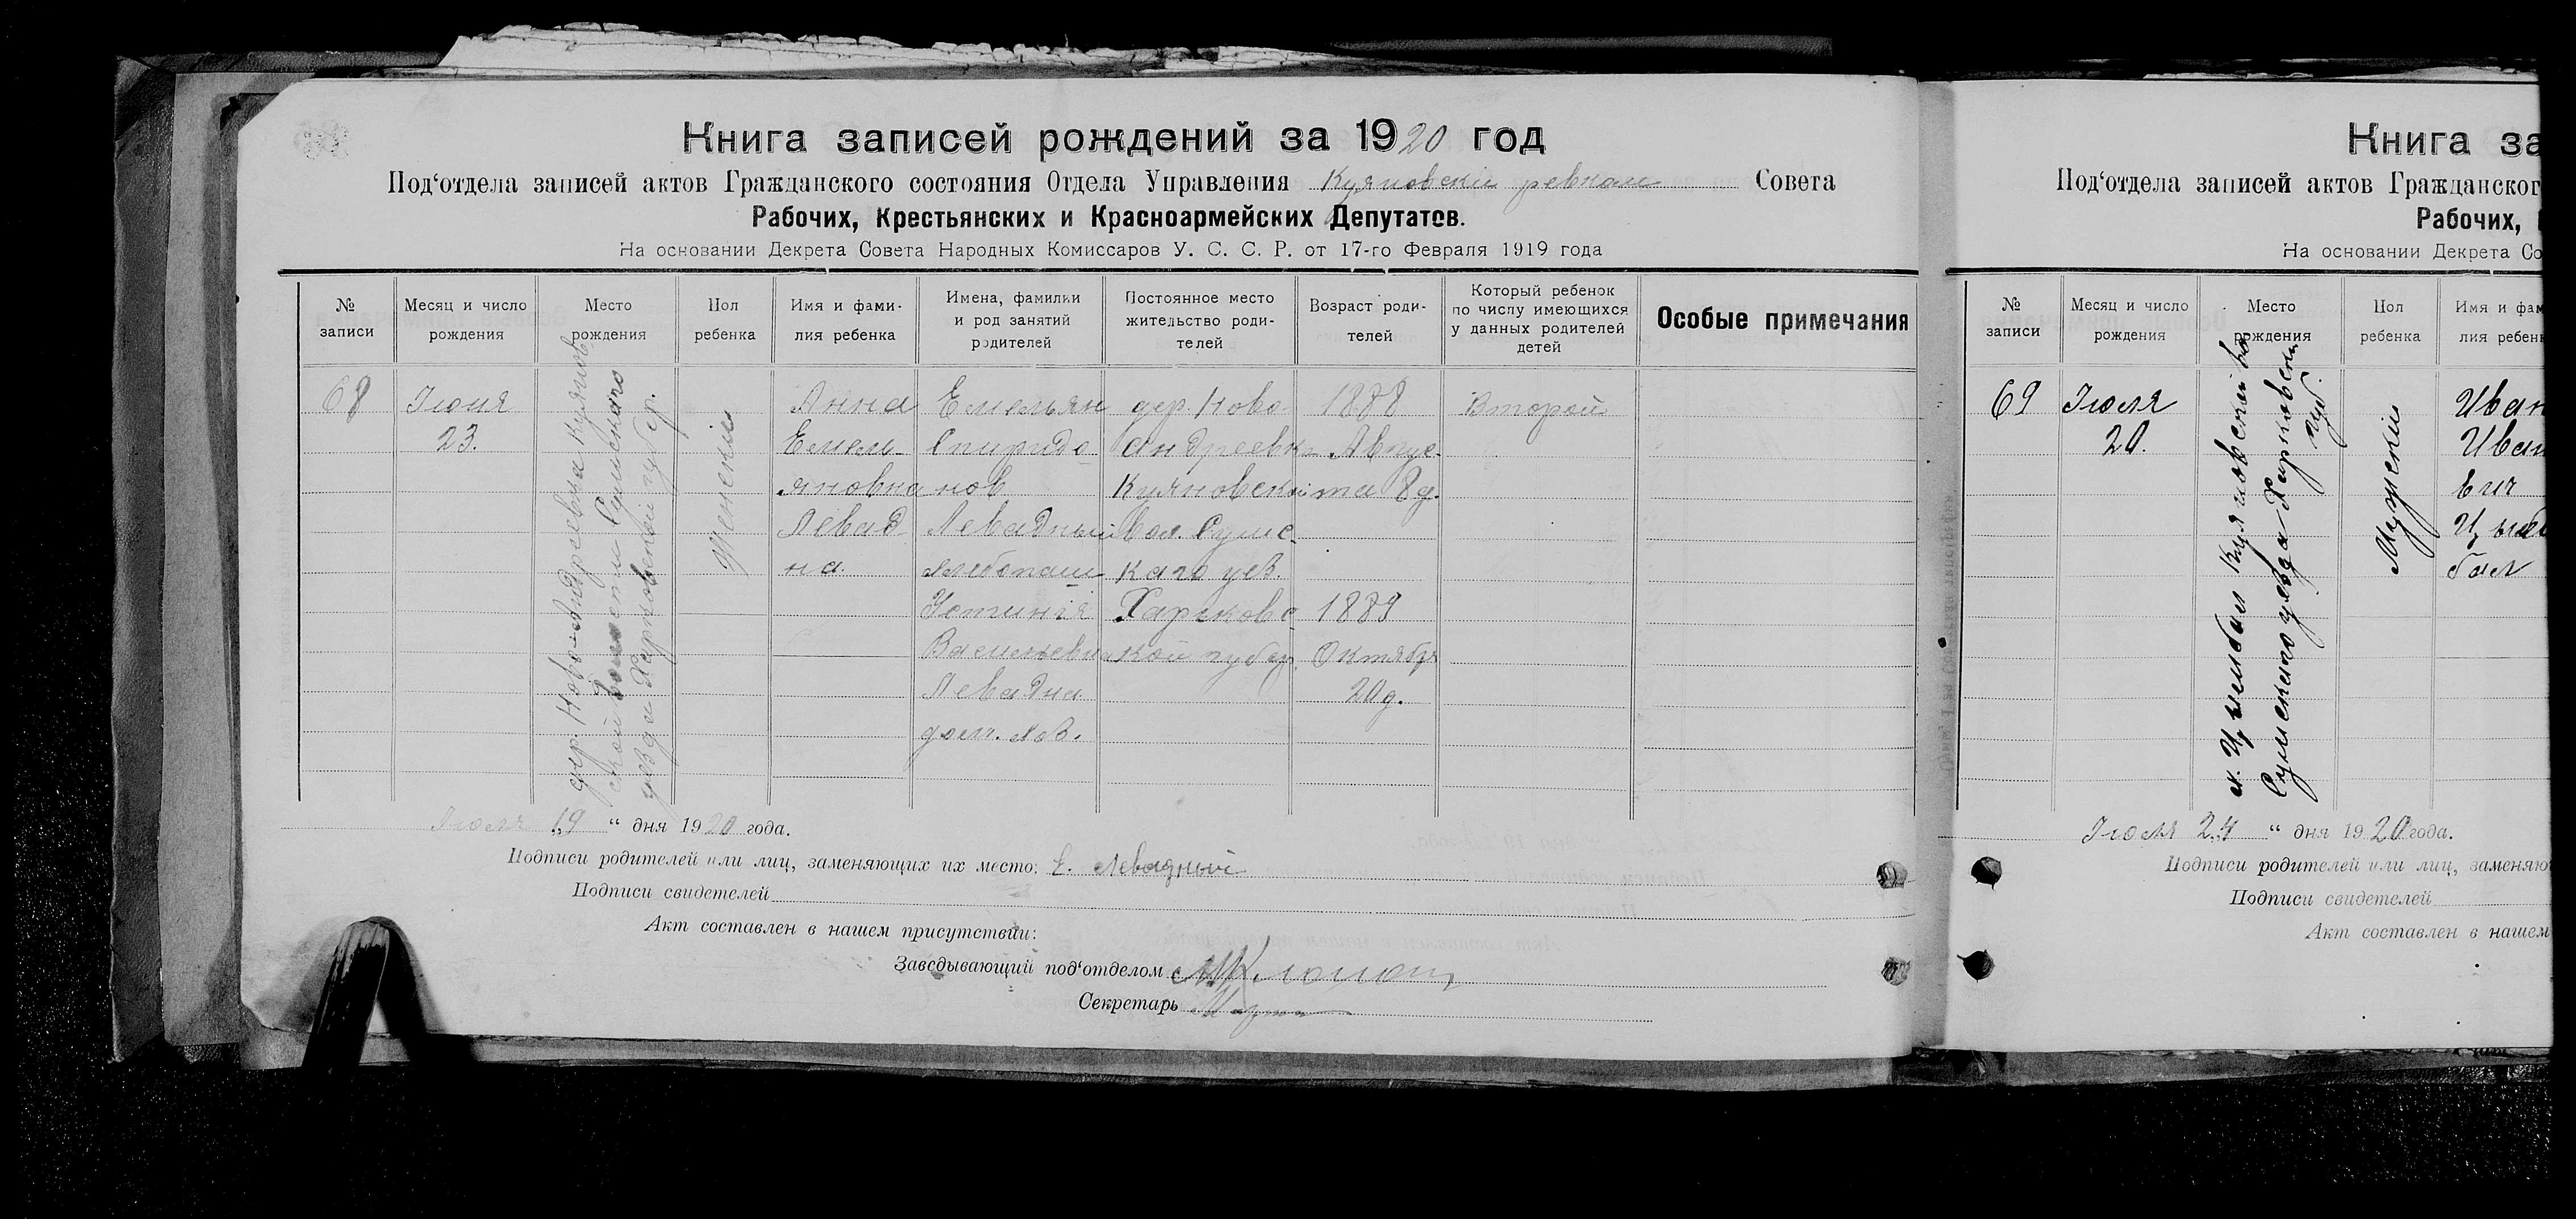 Книга записей рождений за 1920 год
Под‘отдела записей актов Гражданского состояния Отдела Управления Куяновскій ревком Совета
Рабочих, Крестьянских и Красноармейских Депутатов.
На основании Декрета Совета Народных Комиссаров У. С. С. Р. от 17-го Февраля 1919 года
№ записи
Месяц и число рождения
Место рождения
Пол ребенка
Имя и фами-
лия ребенка
Имена, фамилии
и род занятий
родителей
Постоянное место
жительство роди-
телей
Возраст роди-
телей
Который ребенок
по числу имеющихся
у данных родителей
детей
Особые примечания
68
Іюня
23.
дер. Ново-Андреевка Куянов
ской волости Сумскаго
уезда Харковской губер.
Женскій
Анна
Емель-
яновна
Левад-
на.
Емельян
Спиридо-
нов
Левадный
хлебопаш
Устинія
Васильевна
Левадна
дом. хоз.
дер. Ново
андреевк
Куяновской
вол. Сумс-
каго уез.
Харьковс-
кой губер.
1888
Авгус-
та 8 д.
1889
Октябр
20 д.
Второй
Іюля „19“ дня 1920 года.
Подписи родителей или лиц, заменяющих их место: Е. Левадный
Подписи свидетелей
Акт составлен в нашем присутствии:
Заведывающий под‘отделом
Секретарь
Книга за
Под‘отдела записей актов Гражданског
Рабочих,
На основании Декрета Со
№ записи
Месяц и число рождения
Место рождения
Пол ребенка
Имя и фам
лия ребенк
69
Іюля
20.
Сумскаго уезда Харковской
губ.
Мужскій
Иван
Иван
вич
Цымб
бал
Іюля 24 “ дня 1920 года.
Подписи родителей или лиц, заменяю
Подписи свидетелей
Акт составлен в нашем